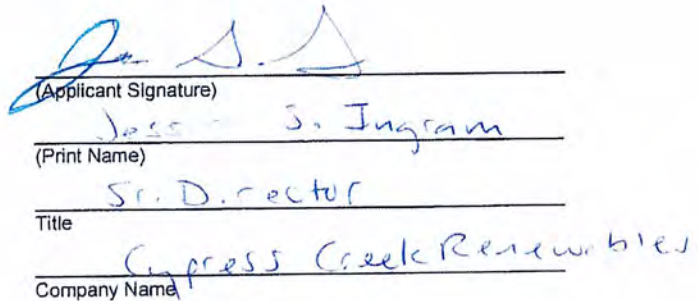 (Applicant Signature)
S. Ingram
(Print Name)
Sr. Director
Title
Cypress Creek Renewables
Company Name